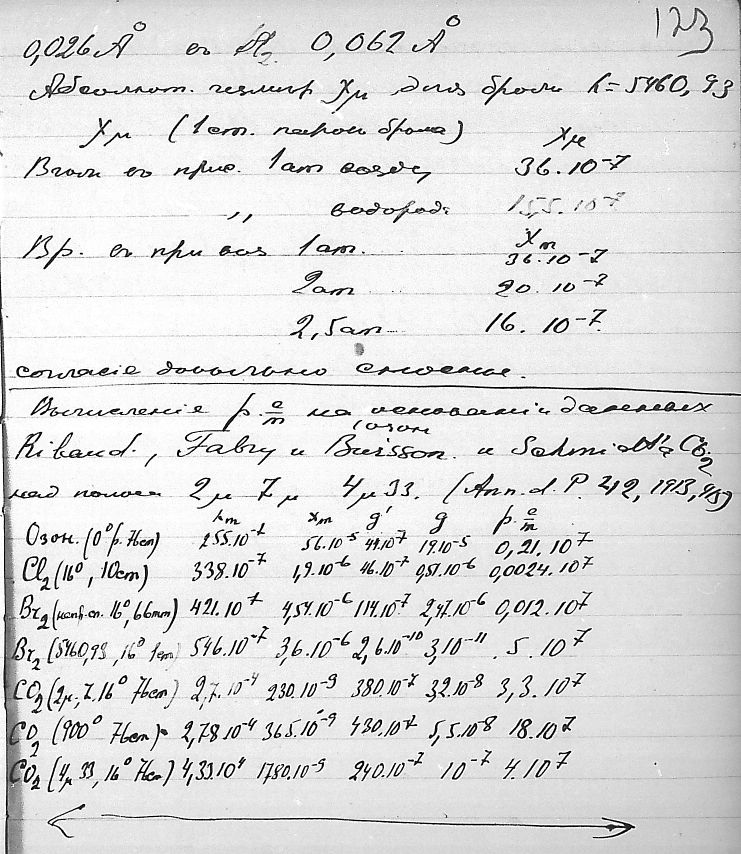 123
0,026 Å въ H₂ 0,062 Å
Абсолют. измѣр χμ для брома λ=5460,93
χμ (1cm. паров брома) χμ
въ прис. 1 am возд, 36.10⁻⁷
,, водород. 15,5.10⁻⁷
Br. въ при воз 1am. χm 36.10⁻⁷
2am 20.10⁻⁷
2,5am 16.10⁻⁷
согласіе довольно сносное.
Вычисленіе p.e/m на основаніи данныхъ
Ribaud., Fabry и Buisson. (озон и Schmidt'a CO₂
над полоса 2μ 7 μ 4μ33. (Ann. d. P. 42, 1913, 415)
λm χm g' g p. e/m
Озон. (0° p. 76cm) 255.10⁻⁷ 56.10⁻⁵ 49.10⁷ 19.10⁻⁵ 0,21.10⁷
Cl₂ (16°, 10cm) 338.10⁻⁷ 1,9.10⁻⁶ 46.10⁻⁷ 0,51.10⁻⁶ 0,0024.10⁷
Br₂ (непр. сп. 16°, 66mm) 421.10⁷ 4,54.10⁻⁶ 114.10⁷ 2,47.10⁻⁶ 0,012.10⁷
Br₂ (5460,93, 16° 1cm) 546.10⁻⁷ 3,6.10⁻⁶ 2,6.10⁻¹⁰ 3,10⁻¹¹ 5.10⁷
CO₂ (2μ,7. 16° 76cm) 2,7.10⁻⁴ 230.10⁻⁹ 380.10⁻⁷ 3,2.10⁻⁸ 3,3.10⁷
CO₂ (900° 76cm) 2,78.10⁻⁴ 365.10⁻⁹ 430.10⁻⁷ 5,5.10⁻⁸ 18.10⁷
CO₂ (4μ 33, 16° 76cm) 4,33.10⁴ 1780.10⁻⁹ 240.10⁻⁷ 10⁻⁷ 4.10⁷